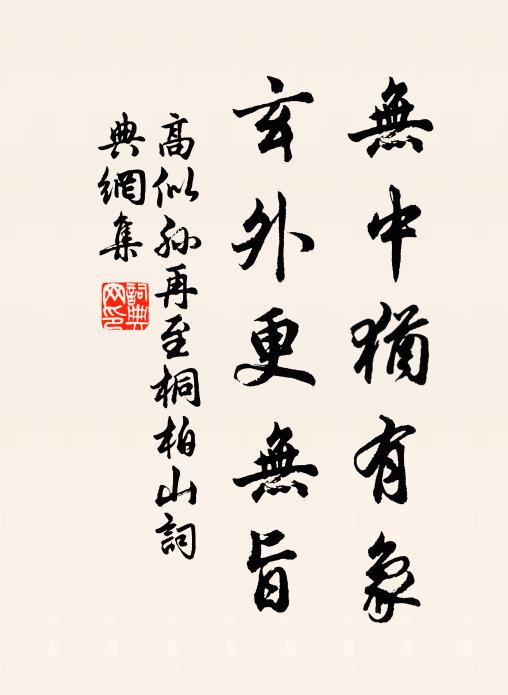 無中猶有象
玄外更無旨
高似孫再至桐柏山詞
典網集
詞典
网印